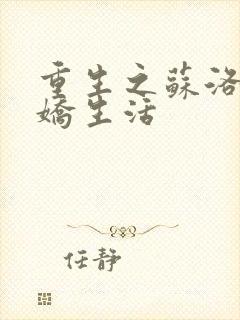 重生之蘇洛
嬌生活
任靜